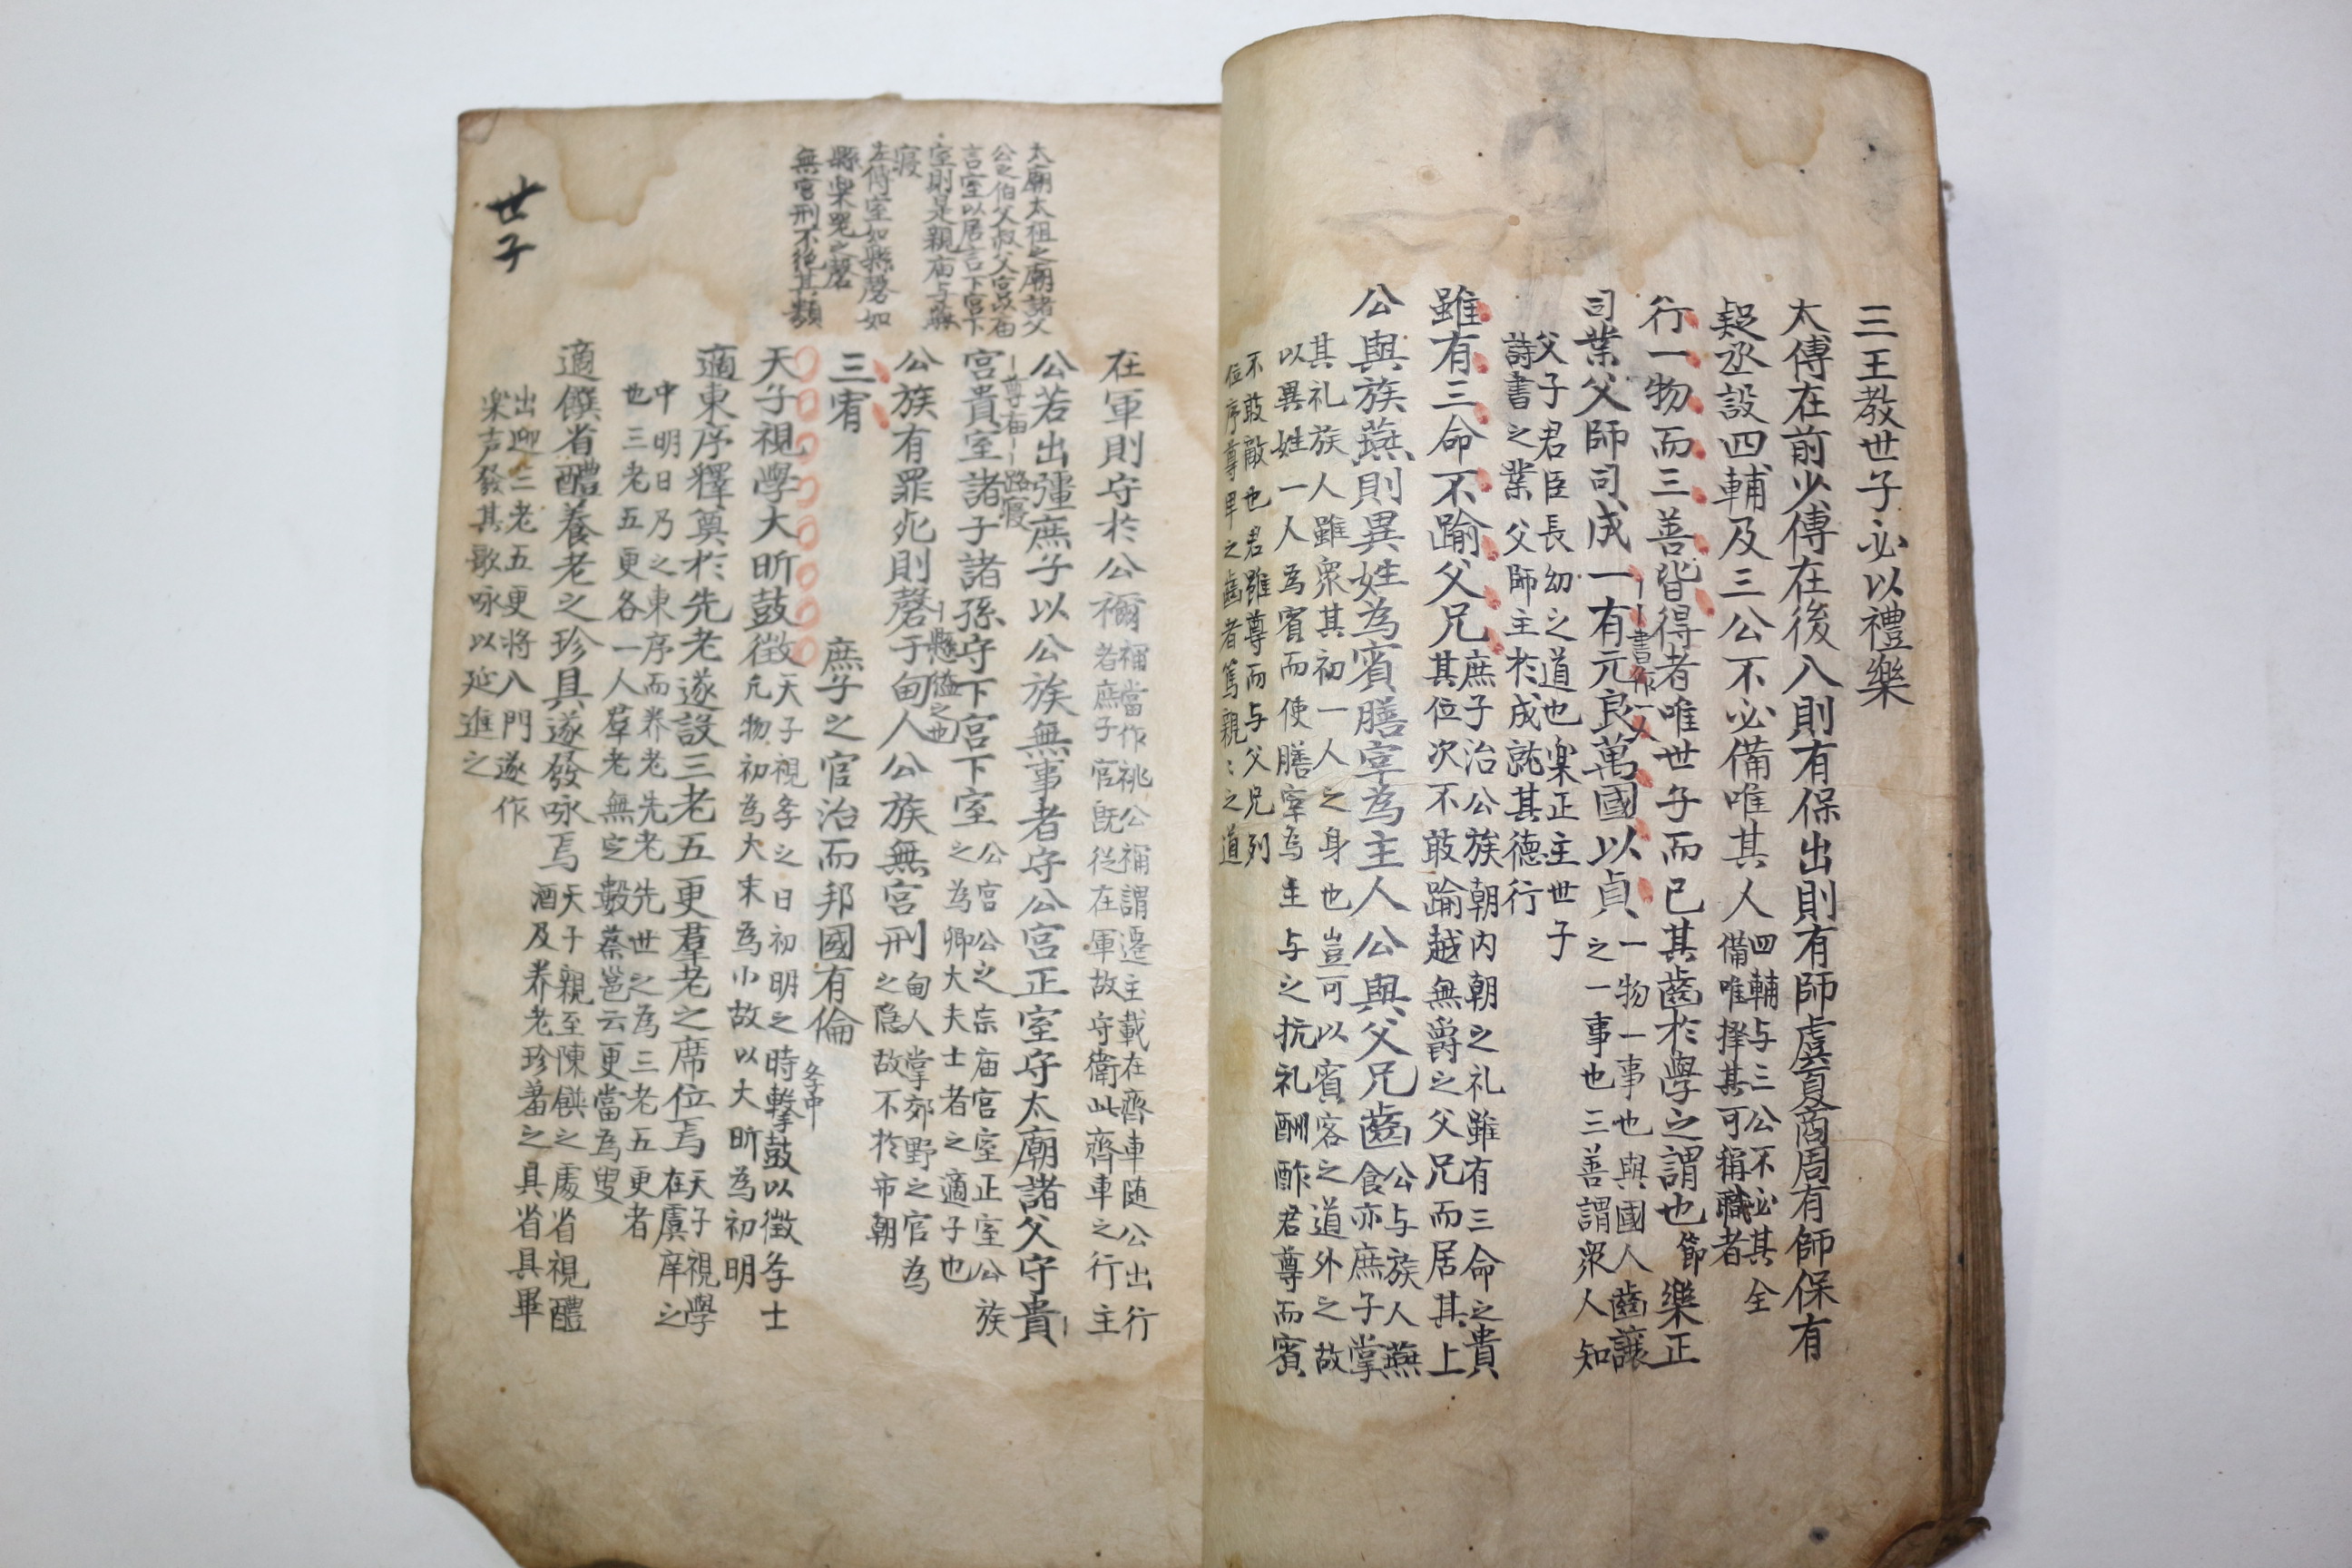 三王教世子必以禮樂
太傅在前少傅在後入則有保出則有師虞夏商周有師保有
疑丞設四輔及三公不必備唯其人
四輔与三公不必其全
備唯擇其可稱職者
行一物而三善皆得者唯世子而已其齒於學之謂也
節
樂正
司業父師司成一有元良萬國以貞
書作一人
一物一事也與國人齒讓
之一事也三善謂眾人知
父子君臣長幼之道也楽正主世子
詩書之業父師主於成就其德行
雖有三命不踰父兄
庶子治公族朝内朝之礼雖有三命之貴
其位次不敢踰越無爵之父兄而居其上
公與族燕則異姓為賓膳宰為主人公與父兄齒
公与族人燕
食亦庶子掌
其礼族人雖眾其初一人之身也豈可以賓客之道外之故
以異姓一人為賓而使膳宰為主与之抗礼酬酢君尊而賓
不敢敵也君雖尊而与父兄列
位序尊卑之齒者篤親〻之道
太廟太祖之廟諸父
公之伯父叔父宮以庙
言室以居言下宮下
室則是親庙与
寢
縣楽器之磬
無宮刑不絕其類
在軍則守於公禰
禰當作祧公禰謂遷主載在齊車随公出行
者庶子官既從在軍故守衛此齊車之行主
公若出疆庶子以公族無事者守公宮正室守太廟諸父守貴
尊庙
路寢
宮貴室諸子諸孫守下宮下室
公宮公之宗庙宮室正室公族
之為卿大夫士者之適子也
公族有罪死則磬于甸人公族無宮刑
懸縊之也
甸人掌郊野之官為
之隐故不於市朝
三宥
庶子之官治而邦國有倫
天子視學大昕鼓徵
斈中
天子視斈之日初明之時擊鼓以徵斈士
凡物初為大末為小故以大昕為初明
適東序釋奠於先老遂設三老五更羣老之席位焉
天子視學
在虞庠之
中明日乃之東序而养老先老先世之為三老五更者
也三老五更各一人羣老無定數蔡邕云更當為叟
適饌省醴養老之珍具遂發咏焉
天子親至陳饌之處省視醴
酒及养老珍羞之具省具畢
出迎三老五更將入門遂作
楽声發其歌咏以延進之
世子